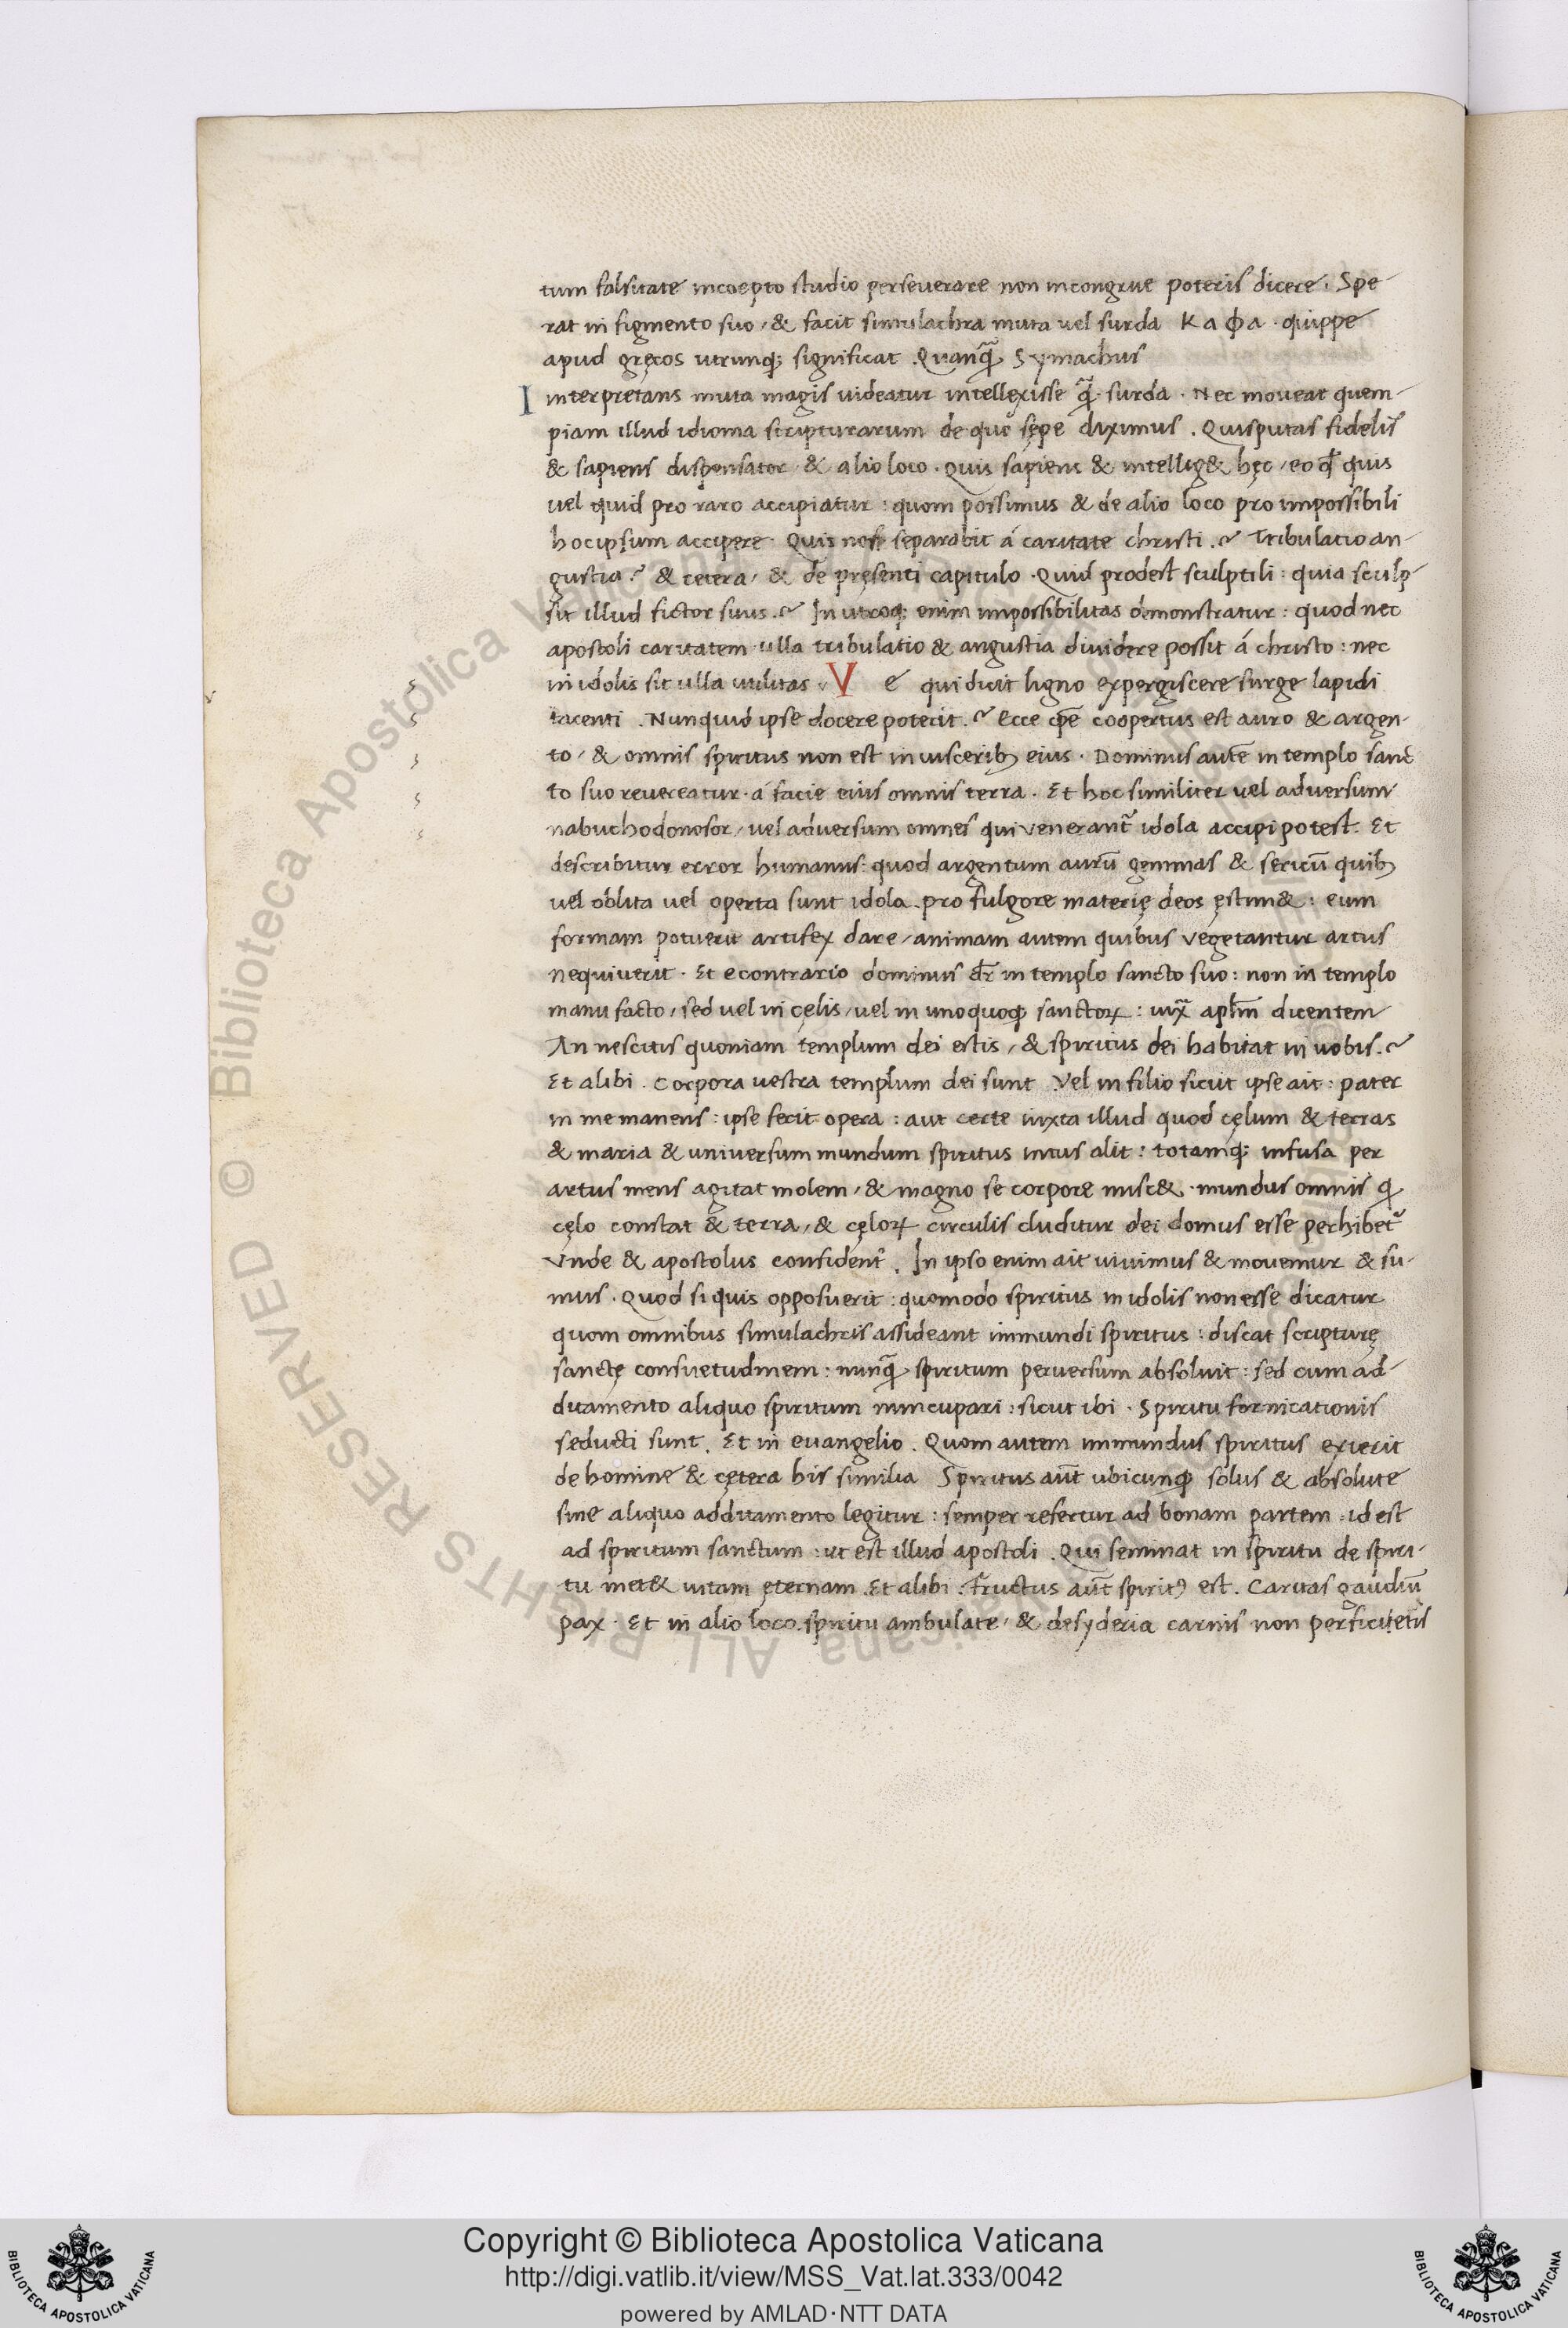 tum falsitate incoepto studio perseverare non incongrue poteris dicere. Spe-
rat in figmento suo, & facit simulachra muta vel surda κ α φ α . quippe
apud gręcos utrunq; significat. Quanq̃ Symachus
Interpretans muta magis uideatur intellexisse q̃ surda. Nec moveat quem-
piam illud idioma scripturarum de quo sępe diximus. Quis putas fidelis
& sapiens dispensator & alio loco. Quis sapiens & intellig& hęc, eo qđ quis
vel quid pro raro accipiatur: quom possimus & de alio loco pro impossibili
hoc ipsum accipere. Quis nos separabit á caritate christi? Tribulatio an-
gustia? & cetera, & de pręsenti capitulo. Quid prodest sculptili: quia sculp-
sit illud fictor suus? In utroq; enim impossibilitas demonstratur: quod nec
apostoli caritatem ulla tribulatio & angustia dividere possit á christo: nec
in idolis sit ulla utilitas. Ve qui dicit ligno expergiscere surge lapidi
tacenti. Nunquid ipse docere poterit? Ecce ipse coopertus est auro & argen-
to, & omnis spiritus non est in visceribȝ eius. Dominus autē in templo sanc
to suo revereatur á facie eius omnis terra. Et hoc similiter vel adversum
nabuchodonosor, vel adversum omnes qui venerant̃ idola accipi potest. Et
describitur error humanus: quod argentum aurū gemmas & sericū quibȝ
uel oblita vel operta sunt idola pro fulgore materię deos ęstim&: eum
formam potuerit artifex dare, animam autem quibus vegetantur artus
nequiverit. Et econtrario dominus dr̄ in templo sancto suo: non in templo
manu facto, sed vel in cęlis, vel in unoquoq; sanctoꝝ: iuxͣ aplm̄ dicentem
An nescitis quoniam templum dei estis, & spiritus dei habitat in vobis?
Et alibi. Corpora vestra templum dei sunt. Vel in filio sicut ipse ait: pater
in me manens: ipse fecit opera: aut certe iuxta illud quod cęlum & terras
& maria & universum mundum spiritus intus alit: totamq; infusa per
artus mens agitat molem, & magno se corpore misc&. mundus omnis q
cęlo constat & terra, & cęloꝝ circulis cluditur dei domus esse perhibet᷑
Vnde & apostolus confident̃. In ipso enim ait vivimus & movemur & su-
mus. Quod si quis opposuerit: quomodo spiritus in idolis non esse dicatur
quom omnibus simulachris assideant immundi spiritus: discat scripturę
sanctę consuetudinem: nunq̃ spiritum perversum absoluit: sed cum ad-
ditamento aliquo spiritum nuncupari: sicut ibi. Spiritu fornicationis
seducti sunt. Et in evangelio. Quom autem immundus spiritus exierit
de homine & cętera his similia Spiritus aūt ubicunq; solus & absolute
sine aliquo additamento legitur: semper refertur ad bonam partem: id est
ad spiritum sanctum: ut est illud apostoli. Qui seminat in spiritu de spiri-
tu met& vitam ęternam. Et alibi. Fructus aūt spiritꝰ est. Caritas gaudiū
pax. Et in alio loco. spiritu ambulate, & desyderia carnis non perficietis
© Biblioteca Apostolica Vaticana ALL RIGHTS RESERVED
Copyright © Biblioteca Apostolica Vaticana
http://digi.vatlib.it/view/MSS_Vat.lat.333/0042
powered by AMLAD·NTT DATA
BIBLIOTECA APOSTOLICA VATICANA
BIBLIOTECA APOSTOLICA VATICANA